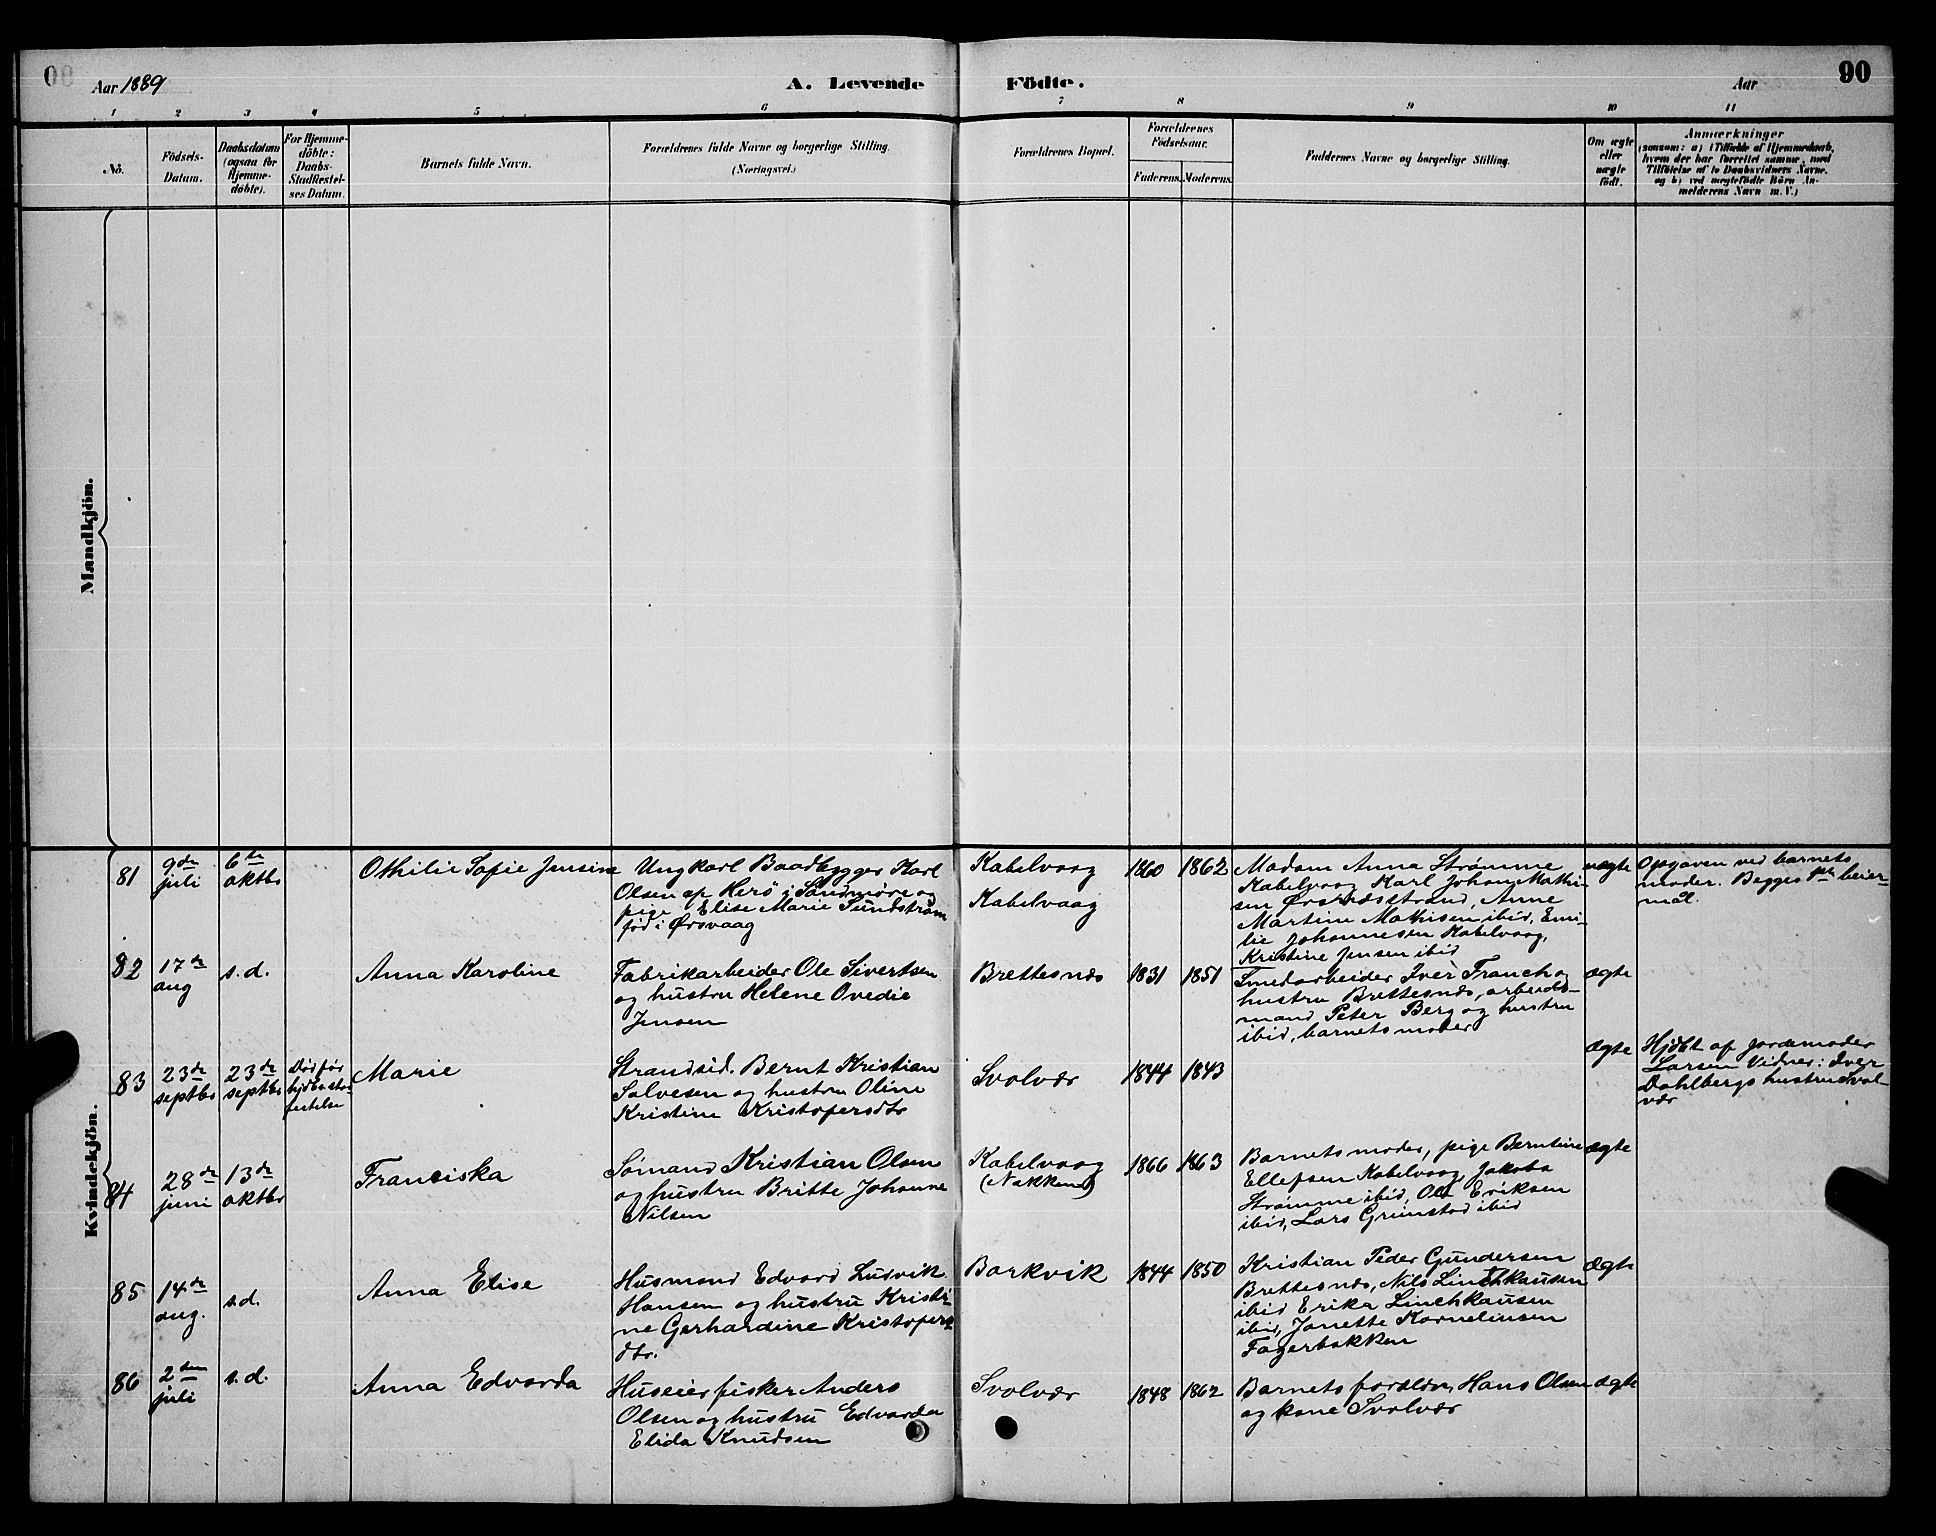 Aar 1889
A. Levende
Födte.
Aar
90
1 2 3 4 5 6 7 8 9 10 11
No.
Födsels-
Datum.
Daabsdatum
(ogsaa for
Hjemme-
döbte).
For Hjemme-
döbte:
Daabs-
Stadfæstel-
ses Datum.
Barnets fulde Navn.
Forældrenes fulde Navne og borgerlige Stilling.
(Næringsvei.)
Forældrenes Bopæl.
Forældrenes
Födselsaar.
Faderens.
Moderens.
Faddernes Navne og borgerlige Stilling.
Om ægte
eller
uægte
födt.
Anmærkninger
(saasom: a) i Tilfælde af Hjemmedaab,
hvem der har forrettet samme, med
Tilföielse af to Daabsvidners Navne.
og b) ved uægtefödte Börn An-
melderens Navn m. V.)
Mandkjön.
Kvindekjön.
81
9de
juli
6te
oktbr
Othilie Sofie Jensine
Ungkarl Baadbygger Karl
Olsen af Herö i Söndmöre og
pige Elise Marie Sundström
föd i Ørsvaag
Kabelvaag
Kabelvaag
1860
1862
Madam Anna Strømme
Kabelvaag Karl Johan Mathi-
sen Ørsnæsstrand, Anne
Martine Mathisen ibid, Emi-
lie Johannesen Kabelvaag,
Kristine Jensen ibid
uægte
Opgaven ved barnets
moder. Begges 1ste leier-
mål.
82
17de
aug
s.d.
Anna Karoline
Fabrikarbeider Ole Sivertsen
og hustru Helene Ovedie
Jensen
Brettesnæs
1831
1851
Smedarbeider Iver Franch og
hustru Brettesnæs, arbeids-
mand Peter Berg og hustru
ibid, barnets moder
ægte
83
23de
septbr
23de
septbr
Död för
hjdbs stad-
fæstelse
Marie
Strandsid. Bernt Kristian
Salvesen og hustru Oline
Kristine Kristofersdtr
Svolvær
1844
1843
ægte
Hjdbt af jordemoder
Larsen Vidner: Iver
Dahlbergs hustru Svol-
vær
84
28de
juni
13de
oktbr
Franciska
Sömand Kristian Olsen
og hustru Britte Johanne
Nilsen
Kabelvaag
(Nakken)
1866
1863
Barnets moder, pige Berntine
Ellefsen Kabelvaag, Jakoba
Strømme ibid, Ole Eriksen
ibid, Lars Grimstad ibid
ægte
85
14de
aug.
s.d.
Anna Elise
Husmand Edvard Ludvik
Hansen og hustru Kristi-
ne Gerhardine Kristofers-
dtr.
Barkvik
1844
1850
Kristian Peder Gundersen
Brettesnæs, Nils Linchkausen
ibid Erika Linchkausen
ibid, Janette Kornelinsen
Fagerbakken
ægte
86
2den
juli
s.d.
Anna Edvarda
Huseier fisker Anders
Olsen og hustru Edvarda
Elida Knudsen
Svolvær
1848
1862
Barnets forældre, Hans Olsen
og kone Svolvær
ægte